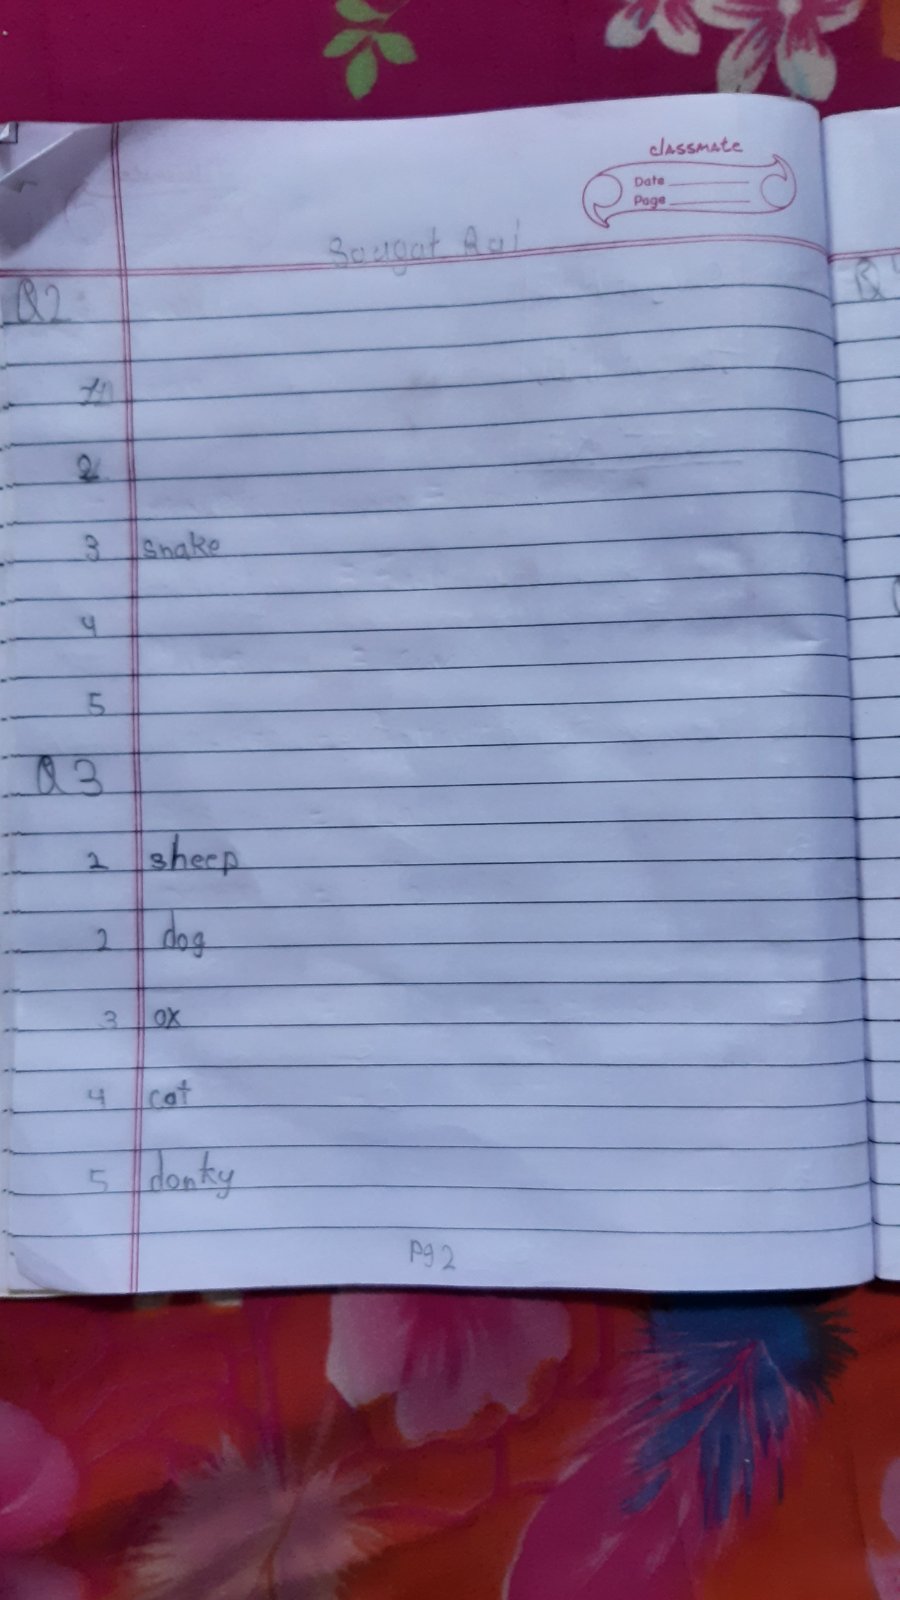 classmate
Date
Page
Sougat Rai
Q2
2
3 snake
4
5
Q3
2 sheep
2 dog
3 ox
4 cat
5 donky
Pg 2